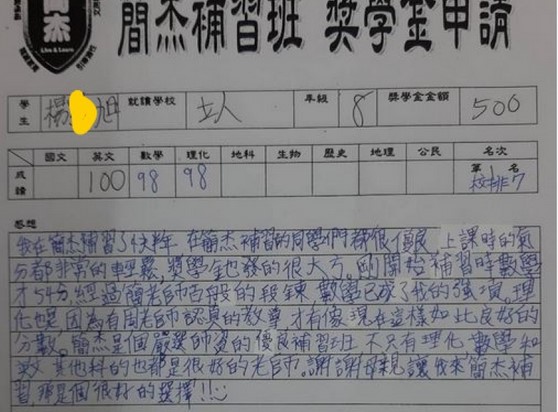 簡杰
Live & Learn
簡杰補習班 獎學金申請
學生 楊 旭 就讀學校 立人 年級 8 獎學金金額 500
國文 英文 數學 理化 地科 生物 歷史 地理 公民 第 名
成績 100 98 98 校排7
感想
我在簡杰補習了快 年 在簡杰補習的同學們都很優良 上課時的氣
分都非常的輕鬆,獎學金也發的很大方。剛開始補習時數學
才54分,經過簡老師百般的段鍊,數學已成了我的強項。理
化也是,因為有周老師認真的教導,才有像現在這樣如此良好的
分數。簡杰是個嚴選師資的優良補習班 不只有理化、數學和
英文 其他科的也都是很好的老師。謝謝母親讓我來簡杰補
習,那是個很好的選擇!!